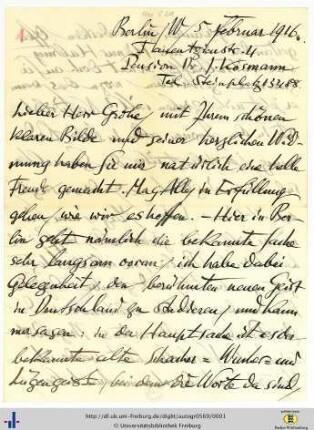 Berlin/W. 5 Februar 1916.
Tauentzienstr. 11
Pension Dr. J. Kosmann
Tel. Steinplatz 13488
Lieber Herr Grohe, mit Ihrem schönen
klaren Bilde und seiner herzlichen Wid-
mung haben Sie mir natürlich eine helle
Freude gemacht. Mag Alles in Erfüllung
gehen, wie wir es hoffen. – Hier in Ber-
lin geht nämlich die bekannte Sache
sehr langsam voran, ich habe dabei
Gelegenheit, den berühmten neuen Geist
in Deutschland zu studieren, und kann
nur sagen: in der Hauptsache ist es der
bekannte alte Schacher= Wucher= und
Lügengeist, bei dem die Worte da sind,
http://dl.ub.uni-freiburg.de/diglit/autogr0569/0001
© Universitätsbibliothek Freiburg
Baden-Württemberg